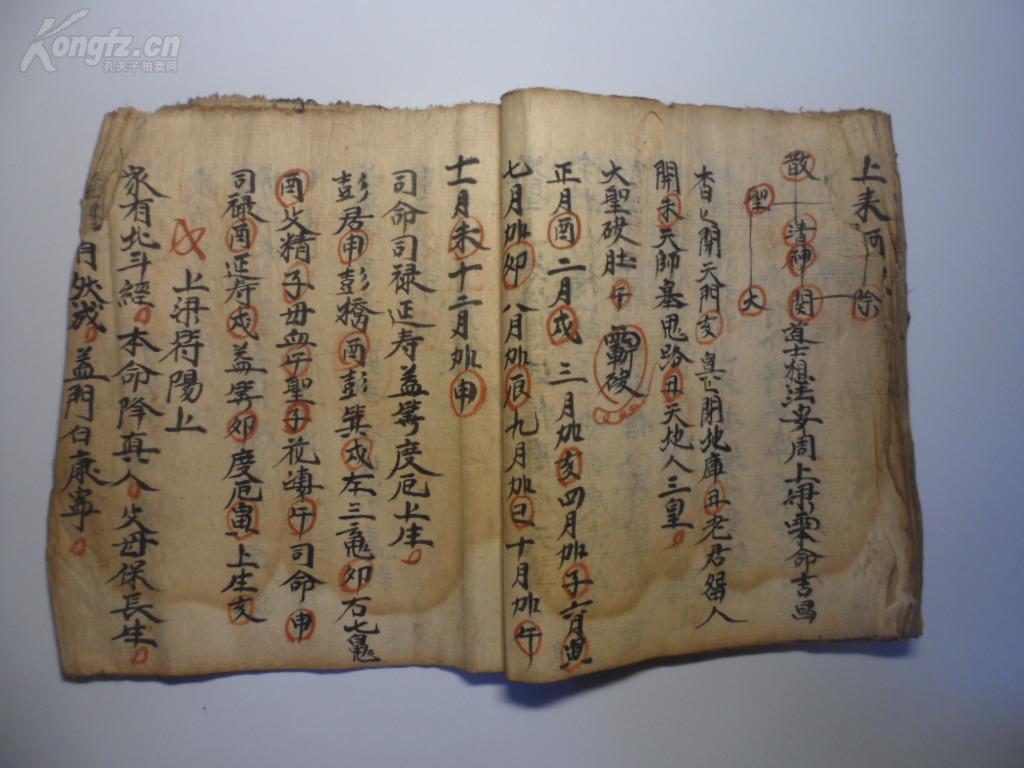 Kongfz.cn
孔夫子拍卖网
上来河
除
散 清神 開
聖 大
道士想法安周上 命吉昌
香 開天門亥 開地庫丑老君留人
開未天師墓鬼路丑天地人三皇
大聖破肚午 破
正月酉二月戌三月加亥四月加子六月
七月加卯八月加辰九月加巳十月加午
十一月未十二月加申
司命司禄延寿益筭度厄上生
彭君申彭橋酉彭 戌左三魂卯右七魄
酉父精子母血午聖子 午司命申
司禄酉延寿戌益筭卯度厄寅上生亥
上 符陽上
家有北斗經本命降真人父母保長生
自然成益門白康寧